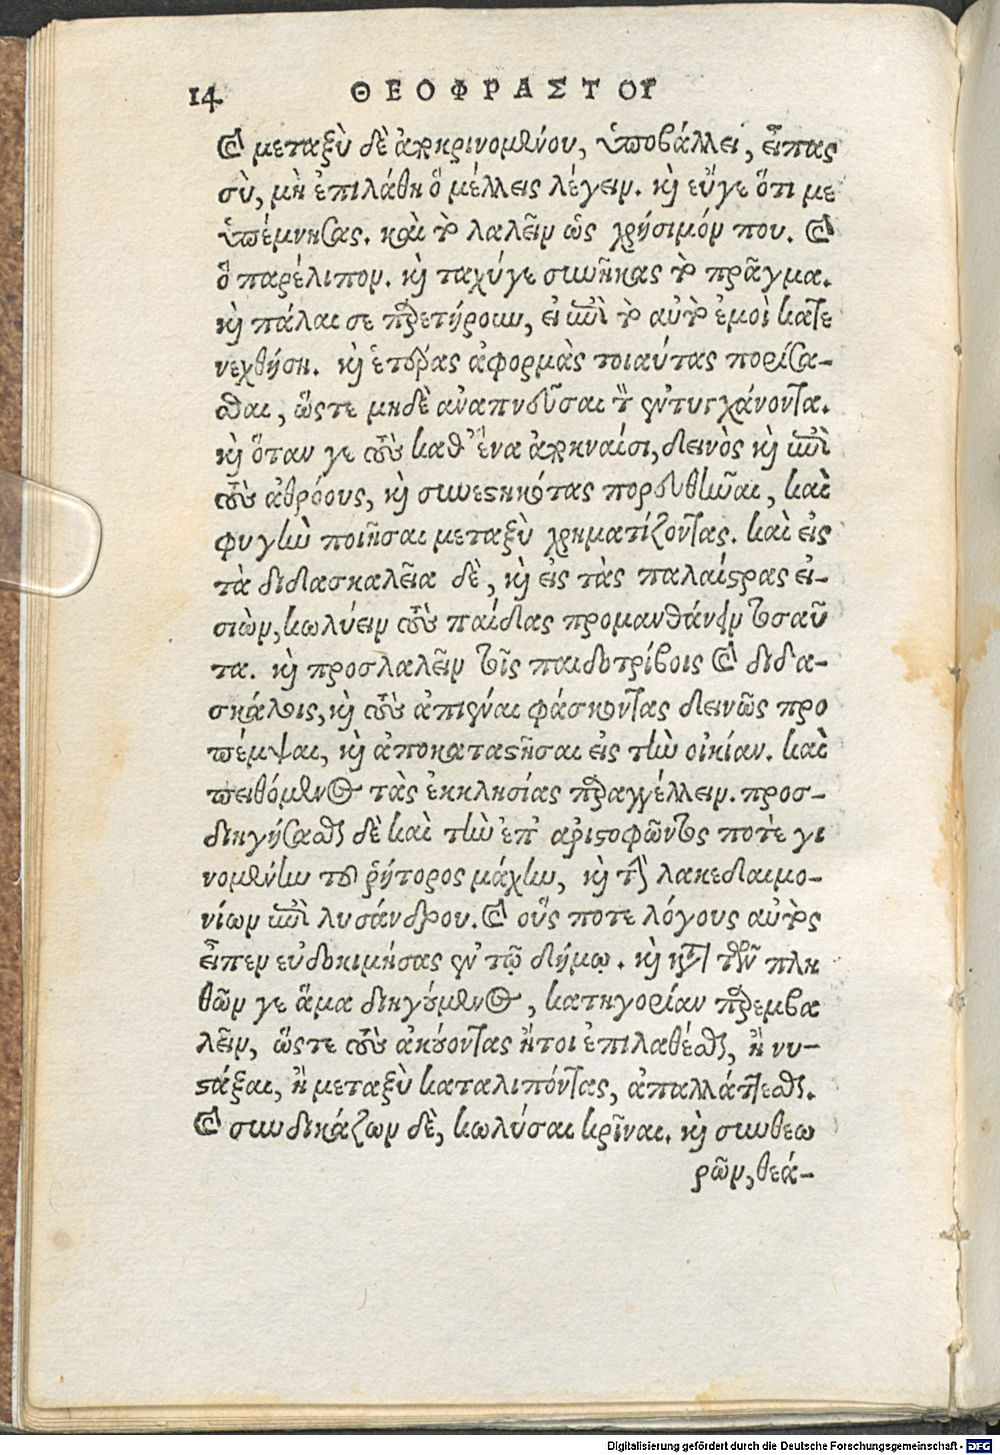 14 ΘΕΟΦΡΑΣΤΟΥ
καὶ μεταξὺ δὲ ἀποκρινομένου, ὑποβάλλει, εἶπας
σὺ, μὴ ἐπιλάθῃ ὃ μέλλεις λέγειν. καὶ εὖγε ὅτι με
ὑπέμνησας. καὶ τὸ λαλεῖν ὡς χρήσιμόν που. καὶ
ὃ παρέλιπον. καὶ ταχύγε συνῆκας τὸ πρᾶγμα.
καὶ πάλαι σε παρετήρουν, εἰ ἐπὶ τὸ αὐτὸ ἐμοὶ κατε
νεχθήσῃ. καὶ ἑτέρας ἀφορμὰς τοιαύτας πορίσα-
σθαι, ὥστε μηδὲ ἀναπνεῦσαι τὸν ἐντυγχάνοντα.
καὶ ὅταν γε τοὺς καθ' ἕνα ἀποκναίσῃ, δεινὸς καὶ ἐπὶ
τοὺς ἀθρόους, καὶ συνεστηκότας πορευθῆναι, καὶ
φυγὴν ποιῆσαι μεταξὺ χρηματίζοντας. καὶ εἰς
τὰ διδασκαλεῖα δὲ, καὶ εἰς τὰς παλαίστρας εἰ-
σιὼν, κωλύειν τοὺς παίδας προμανθάνειν τοσαῦ
τα. καὶ προσλαλεῖν τοῖς παιδοτρίβοις καὶ διδα-
σκάλοις, καὶ τοὺς ἀπιέναι φάσκοντας δεινῶς προ
πέμψαι, καὶ ἀποκαταστῆσαι εἰς τὴν οἰκίαν. καὶ
πειθόμενος τὰς ἐκκλησίας παραγγέλλειν. προσ-
διηγήσασθαι δὲ καὶ τὴν ἐπ' ἀριστοφῶντος ποτὲ γι
νομένην τοῦ ῥήτορος μάχην, καὶ τὴν λακεδαιμο-
νίων ἐπὶ λυσάνδρου. καὶ οὕς ποτε λόγους αὐτὸς
εἶπεν εὐδοκιμήσας ἐν τῷ δήμῳ. καὶ κατὰ τῶν πλη
θῶν γε ἅμα διηγούμενος, κατηγορίαν παρεμβα
λεῖν, ὥστε τοὺς ἀκούοντας ἤτοι ἐπιλαθέσθαι, ἢ νυ-
στάξαι, ἢ μεταξὺ καταλιπόντας, ἀπαλλάττεσθαι.
καὶ συνδικάζων δὲ, κωλύσαι κρῖναι. καὶ συνθεω
ρῶν, θεά-
Digitalisierung gefördert durch die Deutsche Forschungsgemeinschaft - DFG